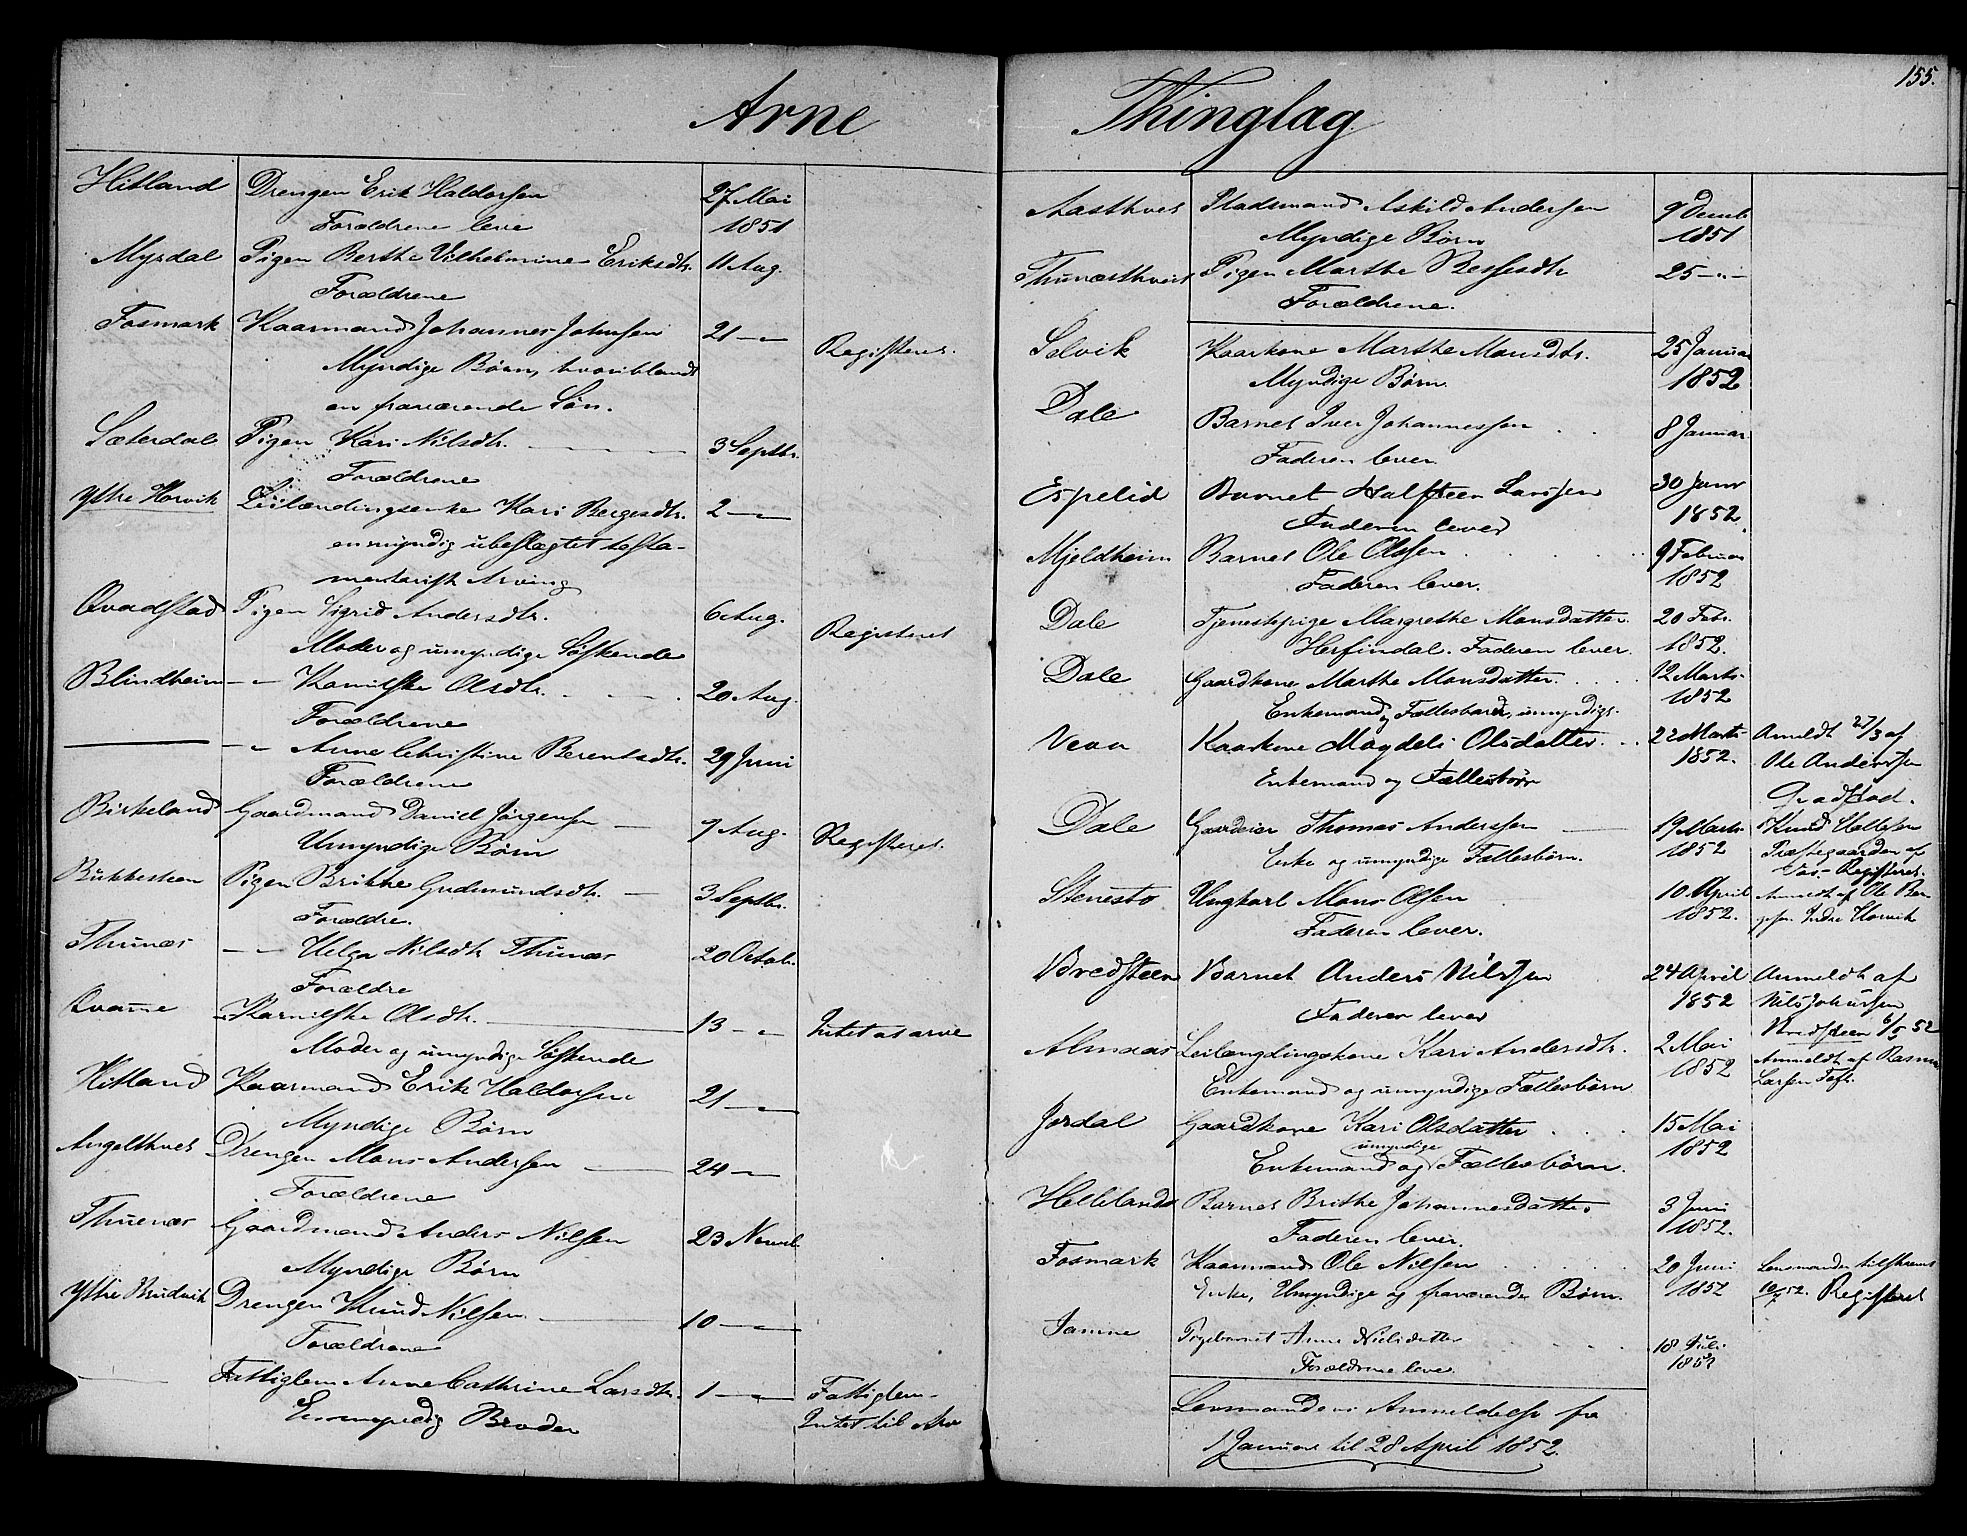 Arne
Hitland Drengen Erik Haldorsen 27 Mai
Forældrene leve 1851
Myrdal Pigen Berthe Vilhelmine Eriksdtr. 11 Aug.
Forældrene
Fosmark Kaarmand Johannes Johnsen 21 —„—
Myndige Børn, hvoriblandt Registeret.
en fraværende Søn.
Sæterdal Pigen Kari Nilsdtr. 3 Septbr.
Forældrene
Ystre Horvik Leilændingsenke Kari Bergesdtr. 2 —„—
en myndig ubeslægtet testa-
mentarisk Arving
Qvadstad Pigen Sigrid Andersdtr. 6 Aug. Registeret
Moder og umyndige Søskende
Blindheim —„— Kamilske Olsdtr. 20 Aug.
Forældrene
——— —„— Anne Christine Berentsdtr. 29 Juni
Forældrene
Birkeland Gaardmand Daniel Jørgensen — 7 Aug. Registeret.
Umyndige Børn
Bukkesteen Pigen Brithe Gudmundsdtr. — 3 Septbr.
Forældre.
Thunæs —„— Helga Nilsdtr Thunæs 20 Octob.
Forældre
Qvamne Karnilske Olsdtr. 13 —„— Intet at arve
Moder og umyndige Søskende
Hitland Kaarmand Erik Haldorsen 21 —„—
Myndige Børn
Angelthvet Drengen Mons Andersen — 24 —„—
Forældrene
Thuenæs Gaardmand Anders Nilsen 23 Noved.
Myndige Børn
Ystre Brudvik Drengen Knud Nilsen 10 —„—
Forældrene
——— Fattiglem Anne Cathrine Larsdtr. 1 —„— Fattiglem-
Broder Intet til Arv
Thinglag
155.
Aasthvet Pladsmand Askild Andersen 9 Decmb
Myndige Børn 1851
Thunæsthveit Pigen Marthe 25 —„—
Forældrene.
Selvik Kaarkone Marthe Monsdtr. 25 Januar
Myndige Børn. 1852
Dale Barnet Iver Johannessen 8 Januar
Faderen lever.
Espelid Barnet Halfsteen Larssen 30 Janr
Faderen lever 1852.
Mjeldheim Barnet Ole Olssen 9 Februar
Faderen lever. 1852
Dale Tjenestepige Margrethe Monsdatter 20 Febr.
Herfindal. Faderen lever. 1852.
Dale Gaardkone Marthe Monsdatter. 12 Marts
Enkemand og Fællesbarn, umyndigt. 1852
Veaa Kaarkone Magdeli Olsdatter 22 Marts Anmeldt 27/3 af
Enkemand og Fællesbørn 1852. Ole Anderssen
Qvadstad.
Dale Gaardeier Thomas Anderssen 19 Marts Knud Hellesen
Enke og umyndige Fællesbørn. 1852 Præstegaarden af
Registeret.
Stenestø Ungkarl Mons Olsen 10 April Anmeldt af Ole Ber-
Faderen lever. 1852. gesen Indre Horvik
Bredsteen Barnet Anders Nilssen 24 April Anmeldt af
Faderen lever 1852 Nils Johnssen
Bredsteen 6/5 52
Almaas Leilændingskone Kari Andersdtr. 2 Mai Anmeldt af Rasmus
Enkemand og umyndige Fællesbørn 1852 Larsen Toft.
Jordal Gaardkone Kari Olsdatter 15 Mai
umyndige
Enkemand og Fællesbørn. 1852
Hellilandet Barnet Brithe Johannesdatter 3 Juni
Faderen lever. 1852.
Fosmark Kaarmand Ole Nilsen 20 Juni Lensmanden
Enke, Umyndige og fraværende Børn. 1852 Registeret
Jamne Pigebarnet Anne Nielsdatter 18 Juli
Forældrene leve 1852
Lensmandens Anmeldelse fra
1 Januar til 28 April 1852.